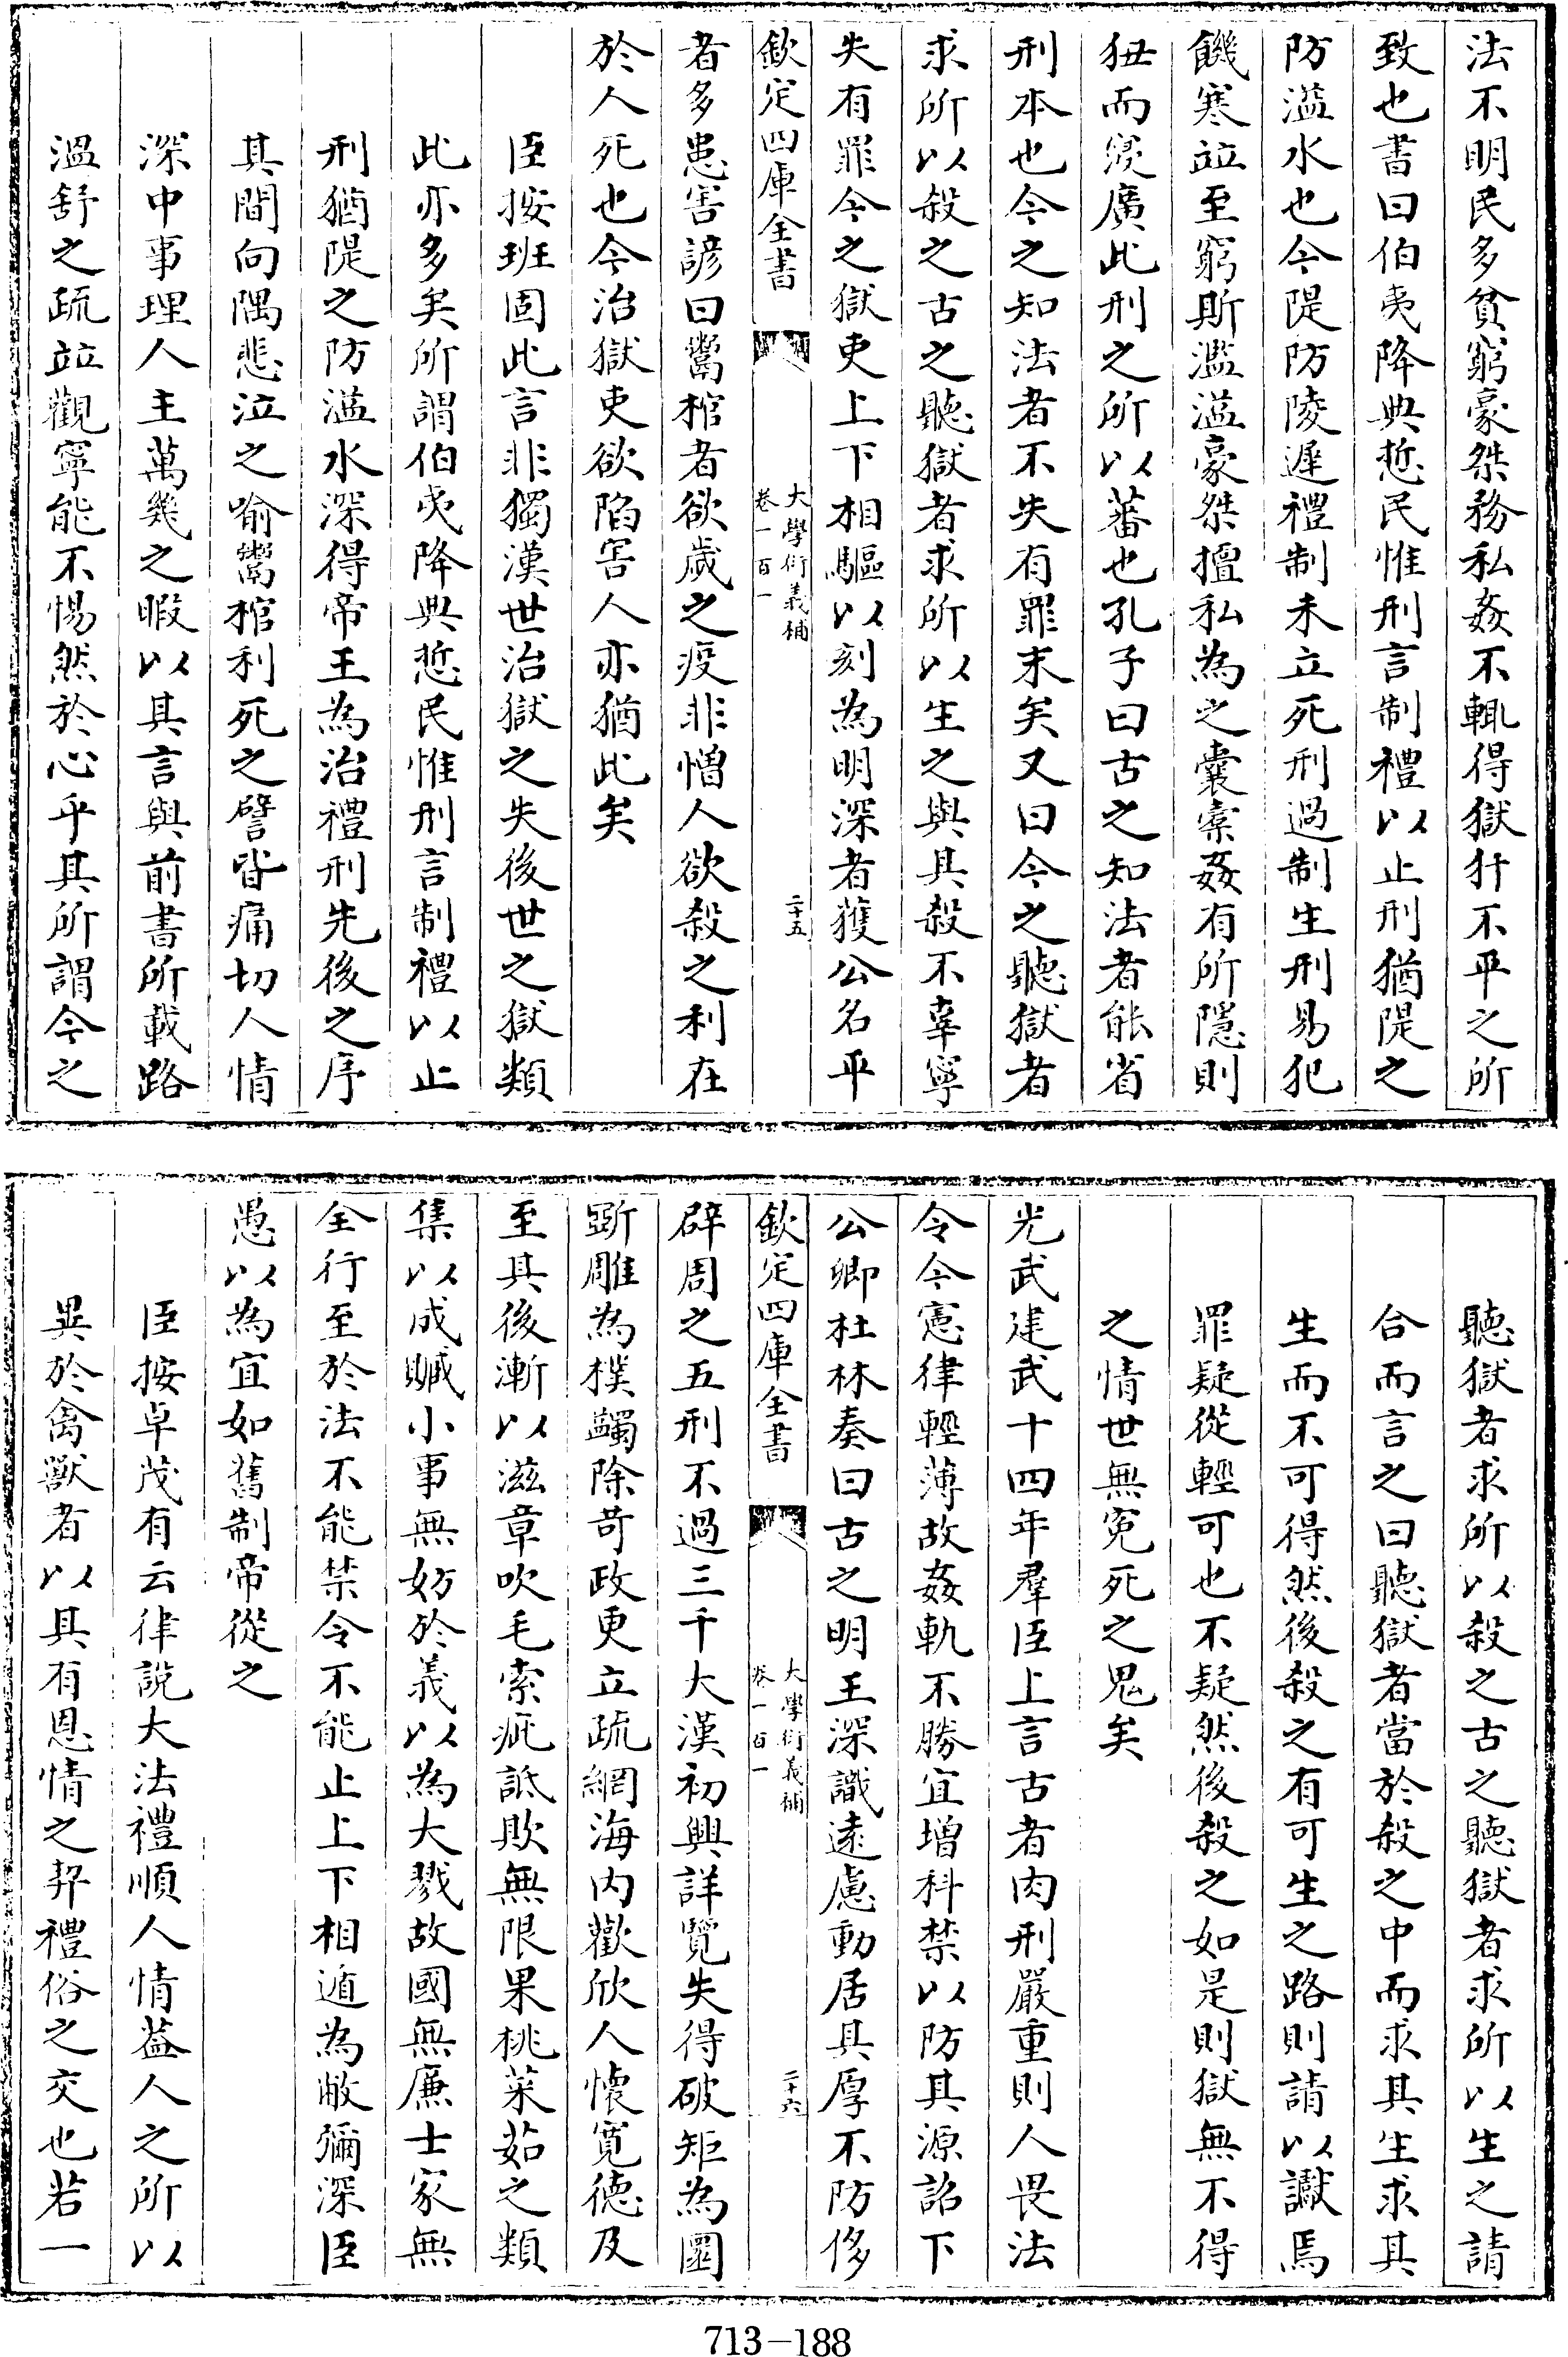 法不明民多貧窮豪桀務私姦不輒得獄犴不平之所
致也書曰伯夷降典悊民惟刑言制禮以止刑猶隄之
防溢水也今隄防陵遲禮制未立死刑過制生刑易犯
饑寒竝至窮斯濫溢豪桀擅私為之囊橐姦有所隱則
狃而寖廣此刑之所以蕃也孔子曰古之知法者能省
刑本也今之知法者不失有罪末矣又曰今之聽獄者
求所以殺之古之聽獄者求所以生之與其殺不辜寧
失有罪今之獄吏上下相驅以刻為明深者獲公名平
欽定四庫全書
大學衍義補
卷一百一
二十五
者多患害諺曰鬻棺者欲歲之疫非憎人欲殺之利在
於人死也今治獄吏欲陷害人亦猶此矣
臣按班固此言非獨漢世治獄之失後世之獄類
此亦多矣所謂伯夷降典悊民惟刑言制禮以止
刑猶隄之防溢水深得帝王為治禮刑先後之序
其間向隅悲泣之喻鬻棺利死之譬皆痛切人情
深中事理人主萬幾之暇以其言與前書所載路
溫舒之疏竝觀寧能不惕然於心乎其所謂今之
聽獄者求所以殺之古之聽獄者求所以生之請
合而言之曰聽獄者當於殺之中而求其生求其
生而不可得然後殺之有可生之路則請以讞焉
罪疑從輕可也不疑然後殺之如是則獄無不得
之情世無冤死之鬼矣
光武建武十四年羣臣上言古者肉刑嚴重則人畏法
令今憲律輕薄故姦軌不勝宜增科禁以防其源詔下
公卿杜林奏曰古之明王深識遠慮動居其厚不防侈
欽定四庫全書
大學衍義補
卷一百一
二十六
辟周之五刑不過三千大漢初興詳覽失得破矩為圜
斲雕為樸蠲除苛政更立疏網海內歡欣人懷寬德及
至其後漸以滋章吹毛索疵詆欺無限果桃菜茹之類
集以成贓小事無妨於義以為大戮故國無廉士家無
全行至於法不能禁令不能止上下相遁為敝彌深臣
愚以為宜如舊制帝從之
臣按卓茂有云律設大法禮順人情葢人之所以
異於禽獸者以其有恩情之契禮俗之交也若一
713-188